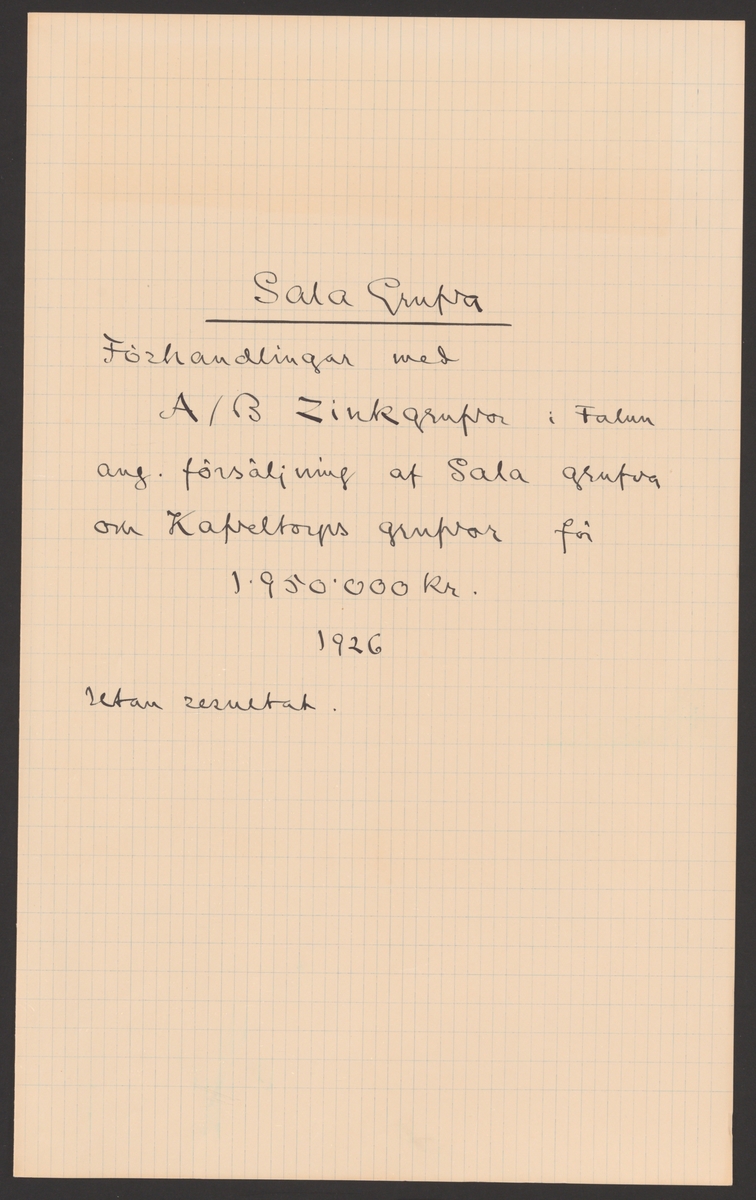 Sala Grufva
Förhandlingar med
A/B Zinkgrufvor i Falun
ang. försäljning af Sala grufva
om Kafveltorps grufvor för
1.950.000 kr.
1926
Utan resultat.